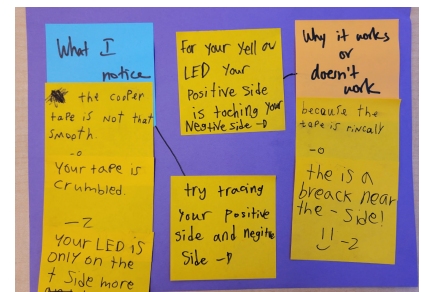 What I
notice
the cooper
tape is not that
smooth.
-o
Your tape is
crumbled.
-Z
YOUR LED iS
ONLY on the
+ Side more
For your yellow
LED Your
Positive side
is toching your
Negtive side -D
try tracing
Your Positive
side and negitive
Side -D
Why it works
or
doesn't
work
because the
tape is rincaly
-o
the is a
breack near
the - Side!
!! -Z